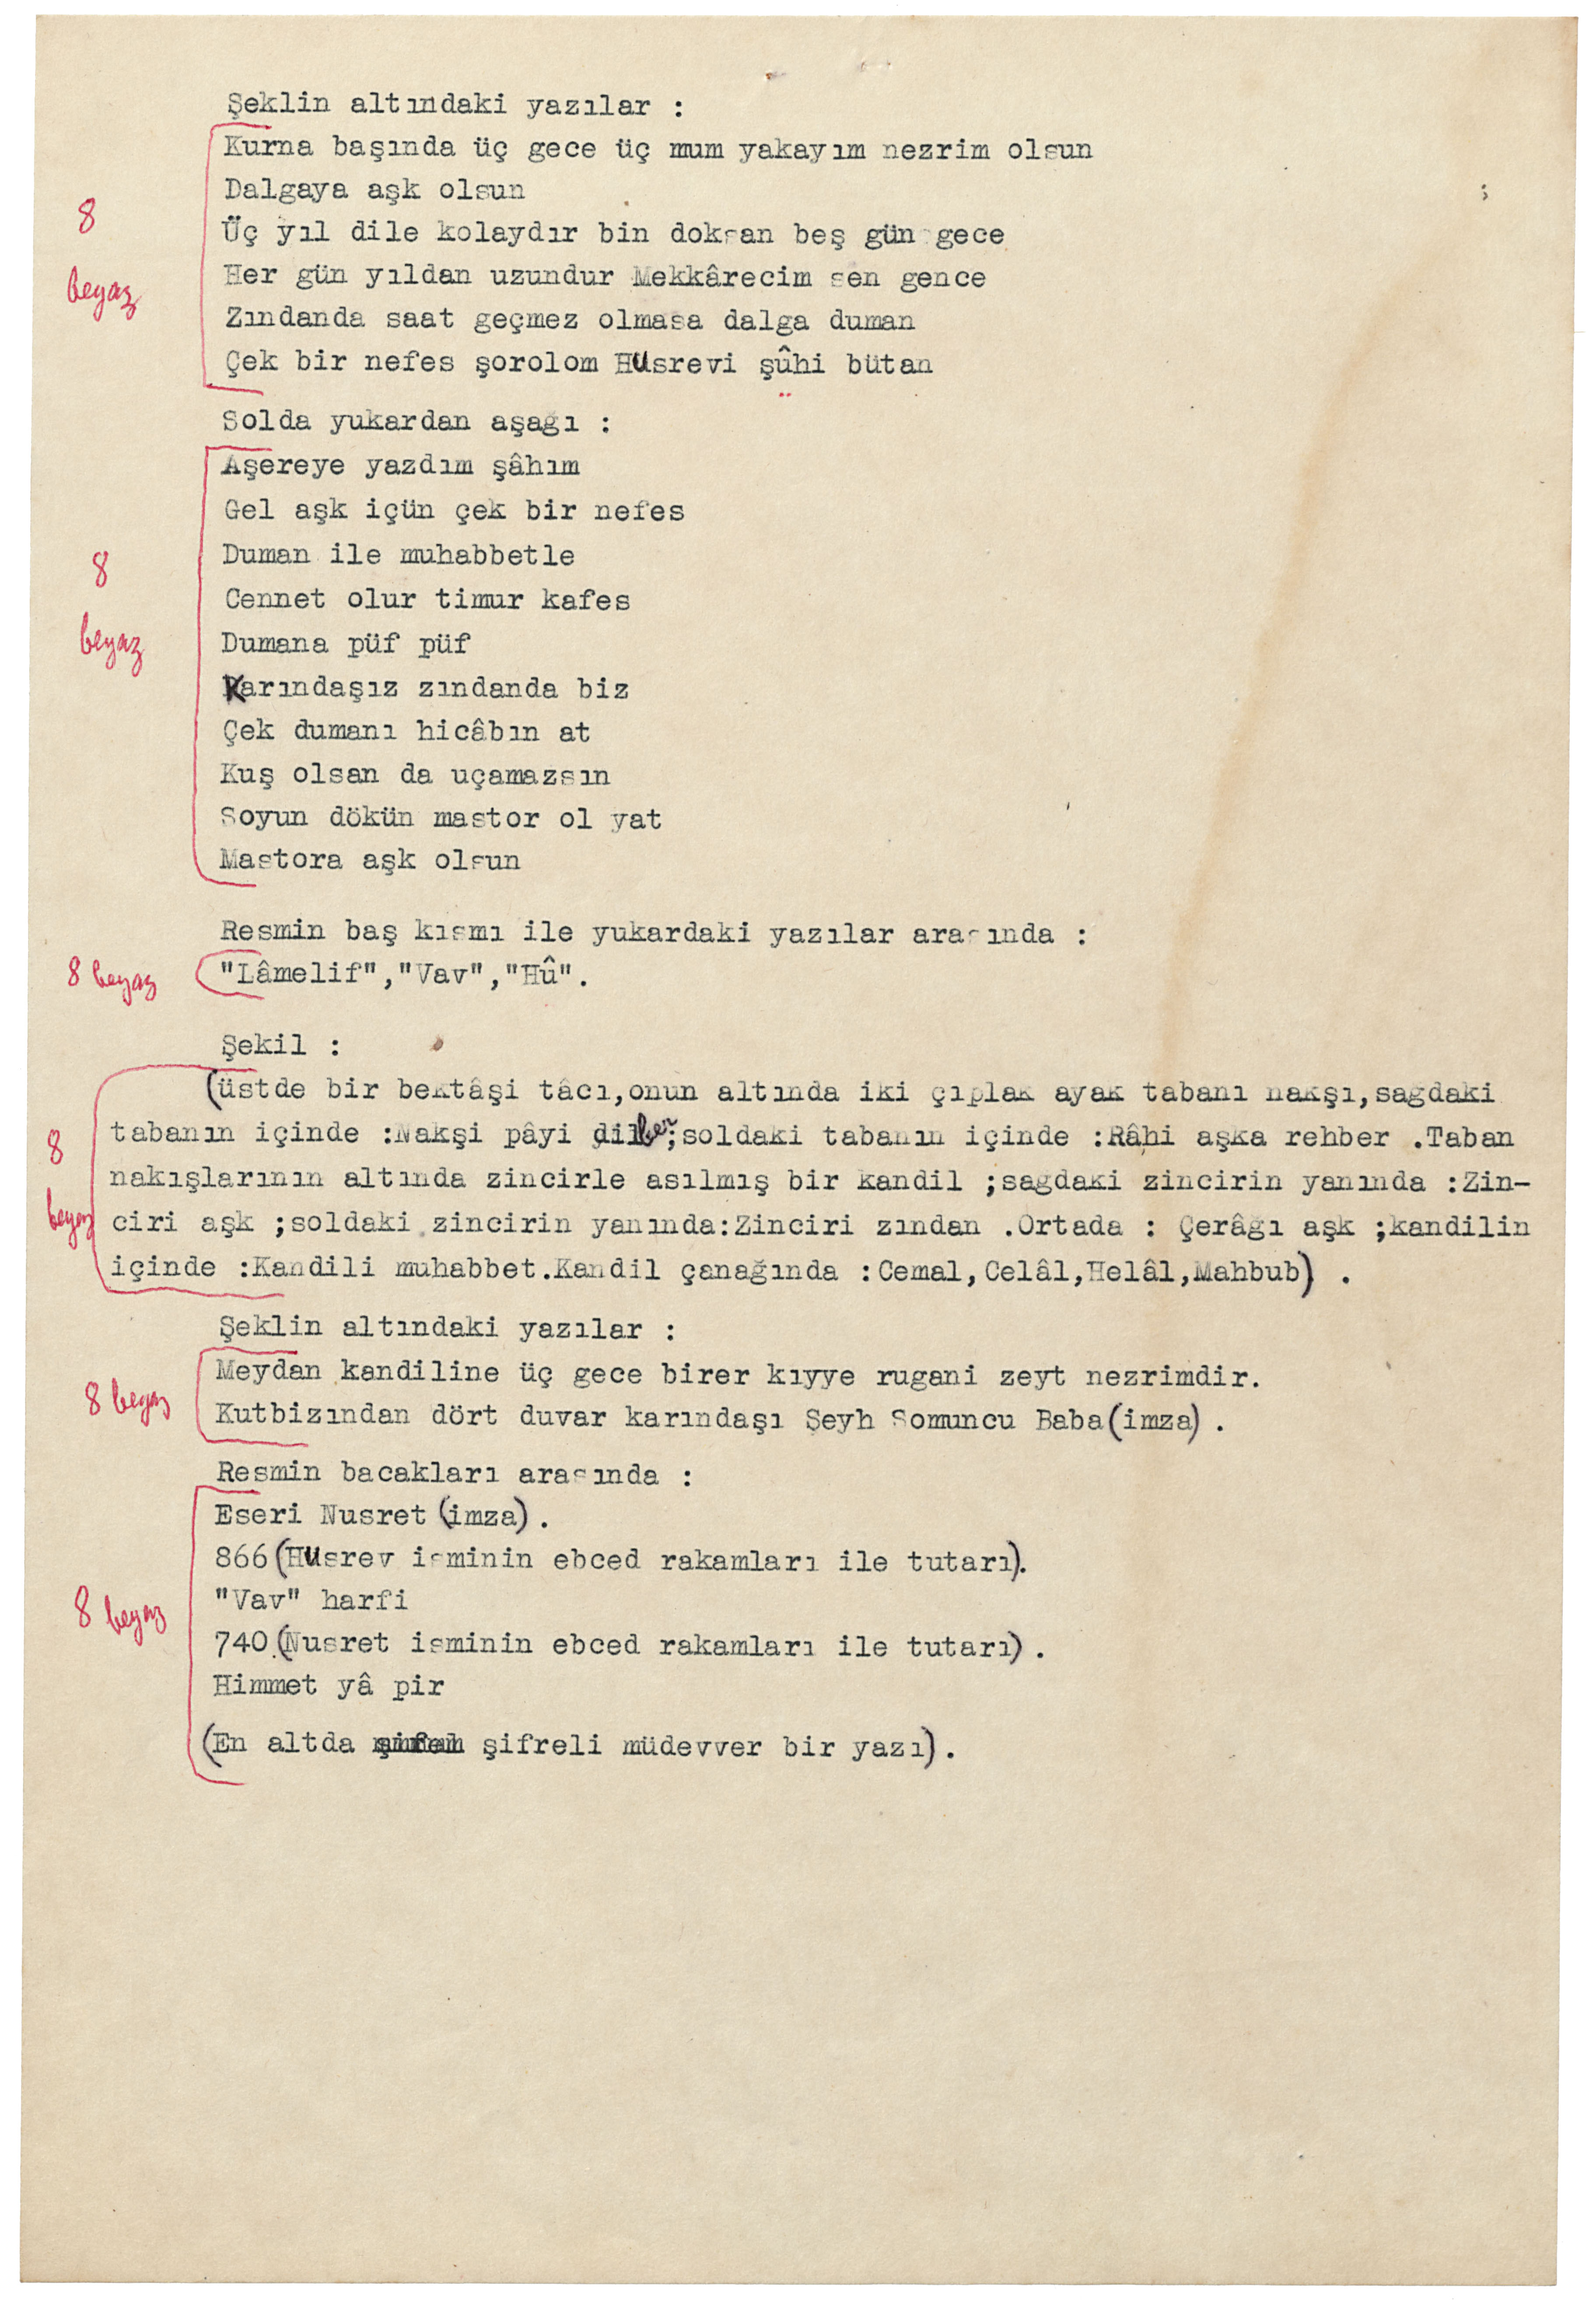 Şeklin altındaki yazılar :
Kurna başında üç gece üç mum yakayım nezrim olsun
Dalgaya aşk olsun
8
Üç yıl dile kolaydır bin doksan beş gün gece
Her gün yıldan uzundur Mekkârecim sen gence
beyaz
Zındanda saat geçmez olmasa dalga duman
Çek bir nefes şorolom Hüsrevi şûhi bütan
Solda yukardan aşagı :
Aşereye yazdım şâhım
Gel aşk içün çek bir nefes
8
Duman ile muhabbetle
Cennet olur timur kafes
beyaz
Dumana püf püf
Karındaşız zındanda biz
Çek dumanı hicâbın at
Kuş olsan da uçamazsın
Soyun dökün mastor ol yat
Mastora aşk olsun
Resmin baş kısmı ile yukardaki yazılar arasında :
8 beyaz
"Lâmelif","Vav","Hû".
Şekil :
(üstde bir bektâşi tâcı,onun altında iki çıplak ayak tabanı nakşı,sagdaki
8
tabanın içinde :Nakşi pâyi dilber;soldaki tabanın içinde :Râhi aşka rehber .Taban
nakışlarının altında zincirle asılmış bir kandil ;sagdaki zincirin yanında :Zin-
beyaz
ciri aşk ;soldaki zincirin yanında:Zinciri zından .Ortada : Çerâgı aşk ;kandilin
içinde :Kandili muhabbet.Kandil çanağında :Cemal,Celâl,Helâl,Mahbub) .
Şeklin altındaki yazılar :
8 beyaz
Meydan kandiline üç gece birer kıyye rugani zeyt nezrimdir.
Kutbizından dört duvar karındaşı Şeyh Somuncu Baba(imza) .
Resmin bacakları arasında :
Eseri Nusret (imza).
866(Hüsrev isminin ebced rakamları ile tutarı).
8 beyaz
"Vav" harfi
740.(Nusret isminin ebced rakamları ile tutarı) .
Himmet yâ pir
(En altda şifreli müdevver bir yazı).